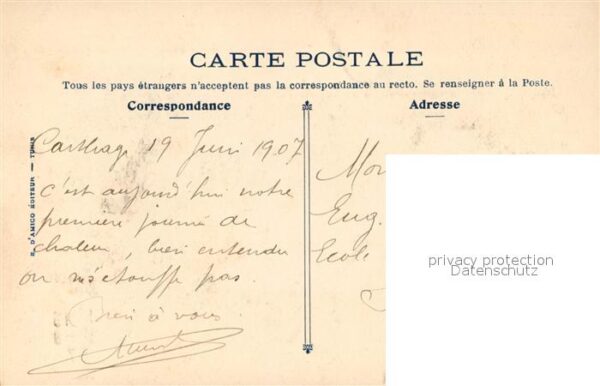 CARTE POSTALE
Tous les pays étrangers n'acceptent pas la correspondance au recto. Se renseigner à la Poste.
Correspondance
Adresse
D'AMICO ÉDITEUR — TUNIS
Carthage 19 Juin 1907
c'est aujourd'hui notre
première journée de
chaleur, bien entendu
on n'étouffe pas.
Bien à vous.
Eug.
Ecole
privacy protection
Datenschutz